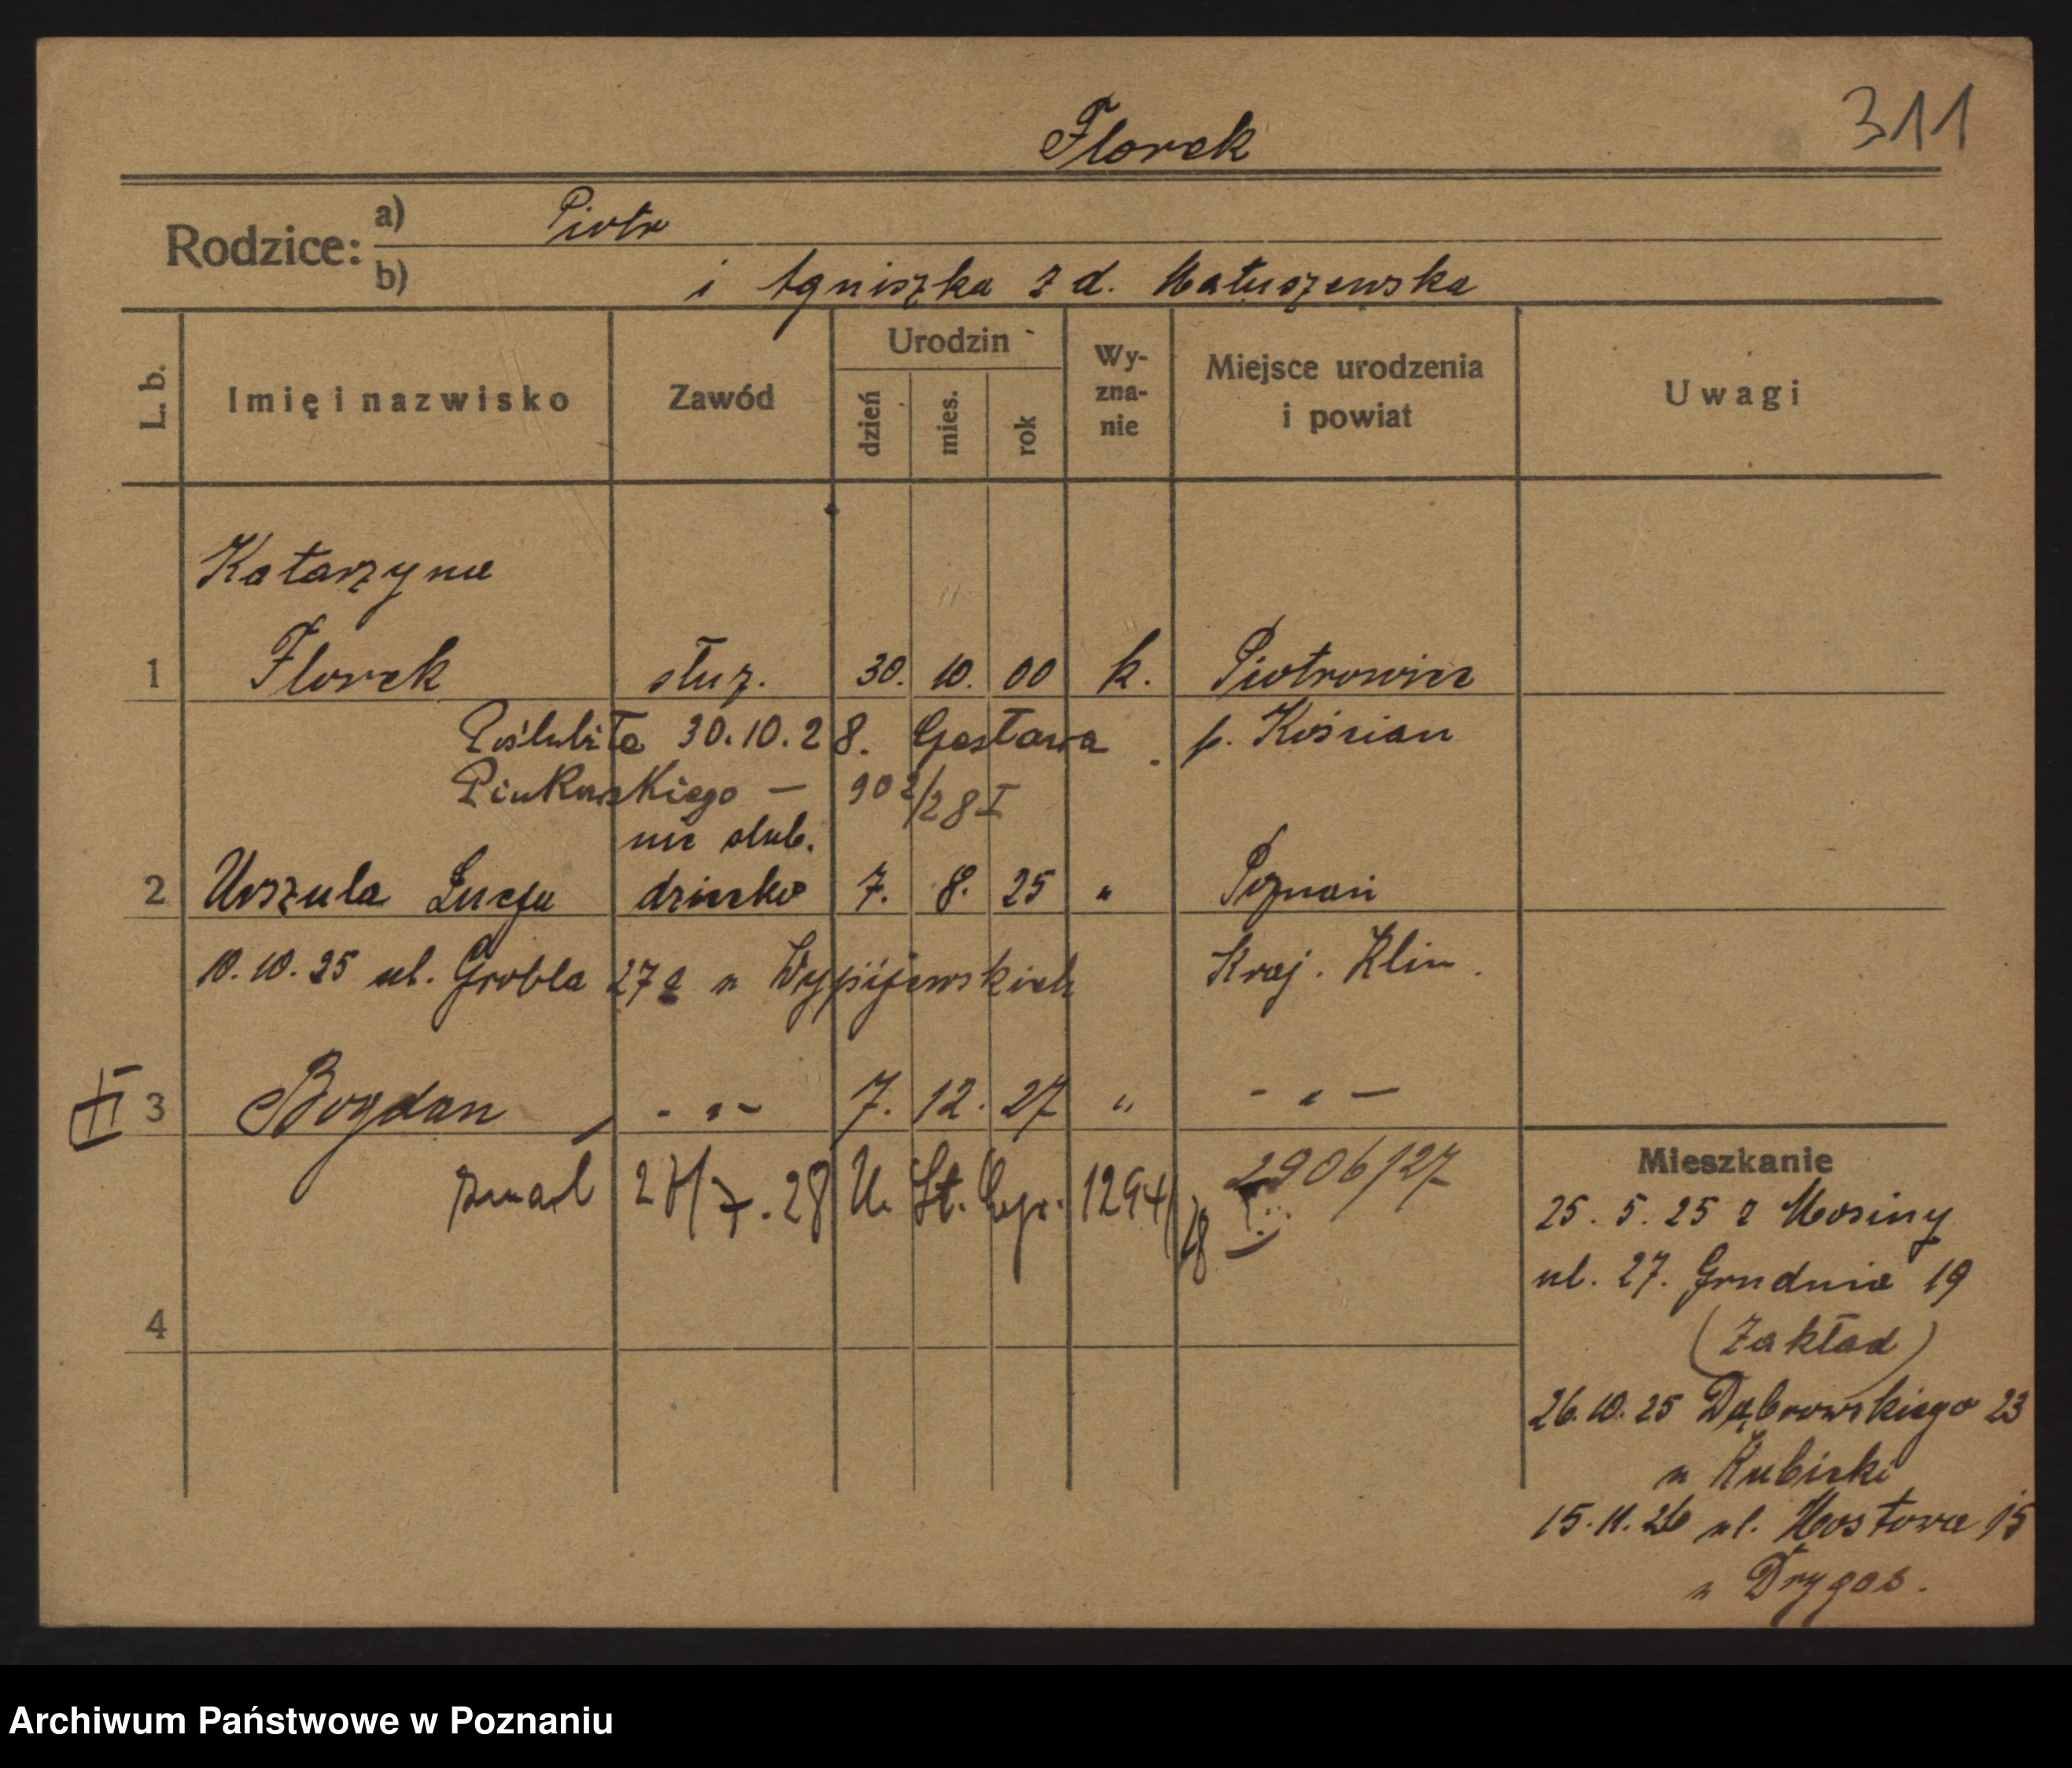 311
Florek
Rodzice: a) Piotr
b) i Agnieszka z d. Matuszewska
L. b.
Imię i nazwisko
Zawód
Urodzin
dzień
mies.
rok
Wy-
zna-
nie
Miejsce urodzenia
i powiat
Uwagi
Katarzyna
1 Florek służ. 30. 10. 00 k. Piotrowice
Poślubiła 30.10.28. Gustawa p. Kościan
902/28 I
nie ślub.
2 Urszula Lucja dziecko 7. 8. 25 " Poznań
10.10.25 ul. Grobla 27a u Wypijewskich Kraj. Klin.
II 3 Bogdan - " - 7. 12. 27 " - " -
zmarł 28/7.28 U. St. 1294/28 2906/27
4
Mieszkanie
25. 5. 25 z Mosiny
ul. 27. Grudnia 19
(Zakład)
26.10.25 Dąbrowskiego 23
u Kubicki
15.11.26 ul. Mostowa 15
u Drygas.
Archiwum Państwowe w Poznaniu